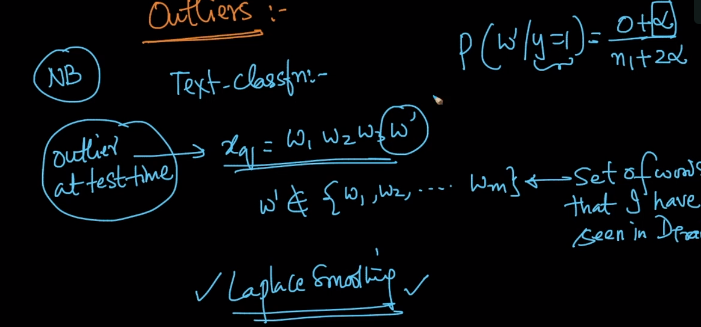 Outliers :-
P(w'/y=1) = 0+α / n1+2α
NB
Text-classfn:-
outlier
at test-time
xq = w1 w2 w3 w'
w' ∉ {w1, w2, .... wm}
Set of words
that I have
seen in DTra
✓ Laplace Smoothing ✓